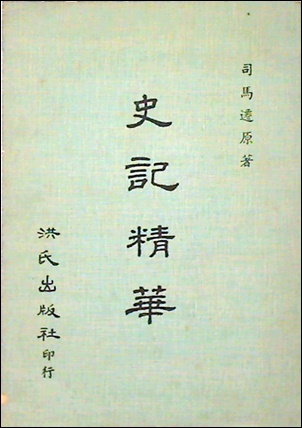 司馬遷原著
史記精華
洪氏出版社印行